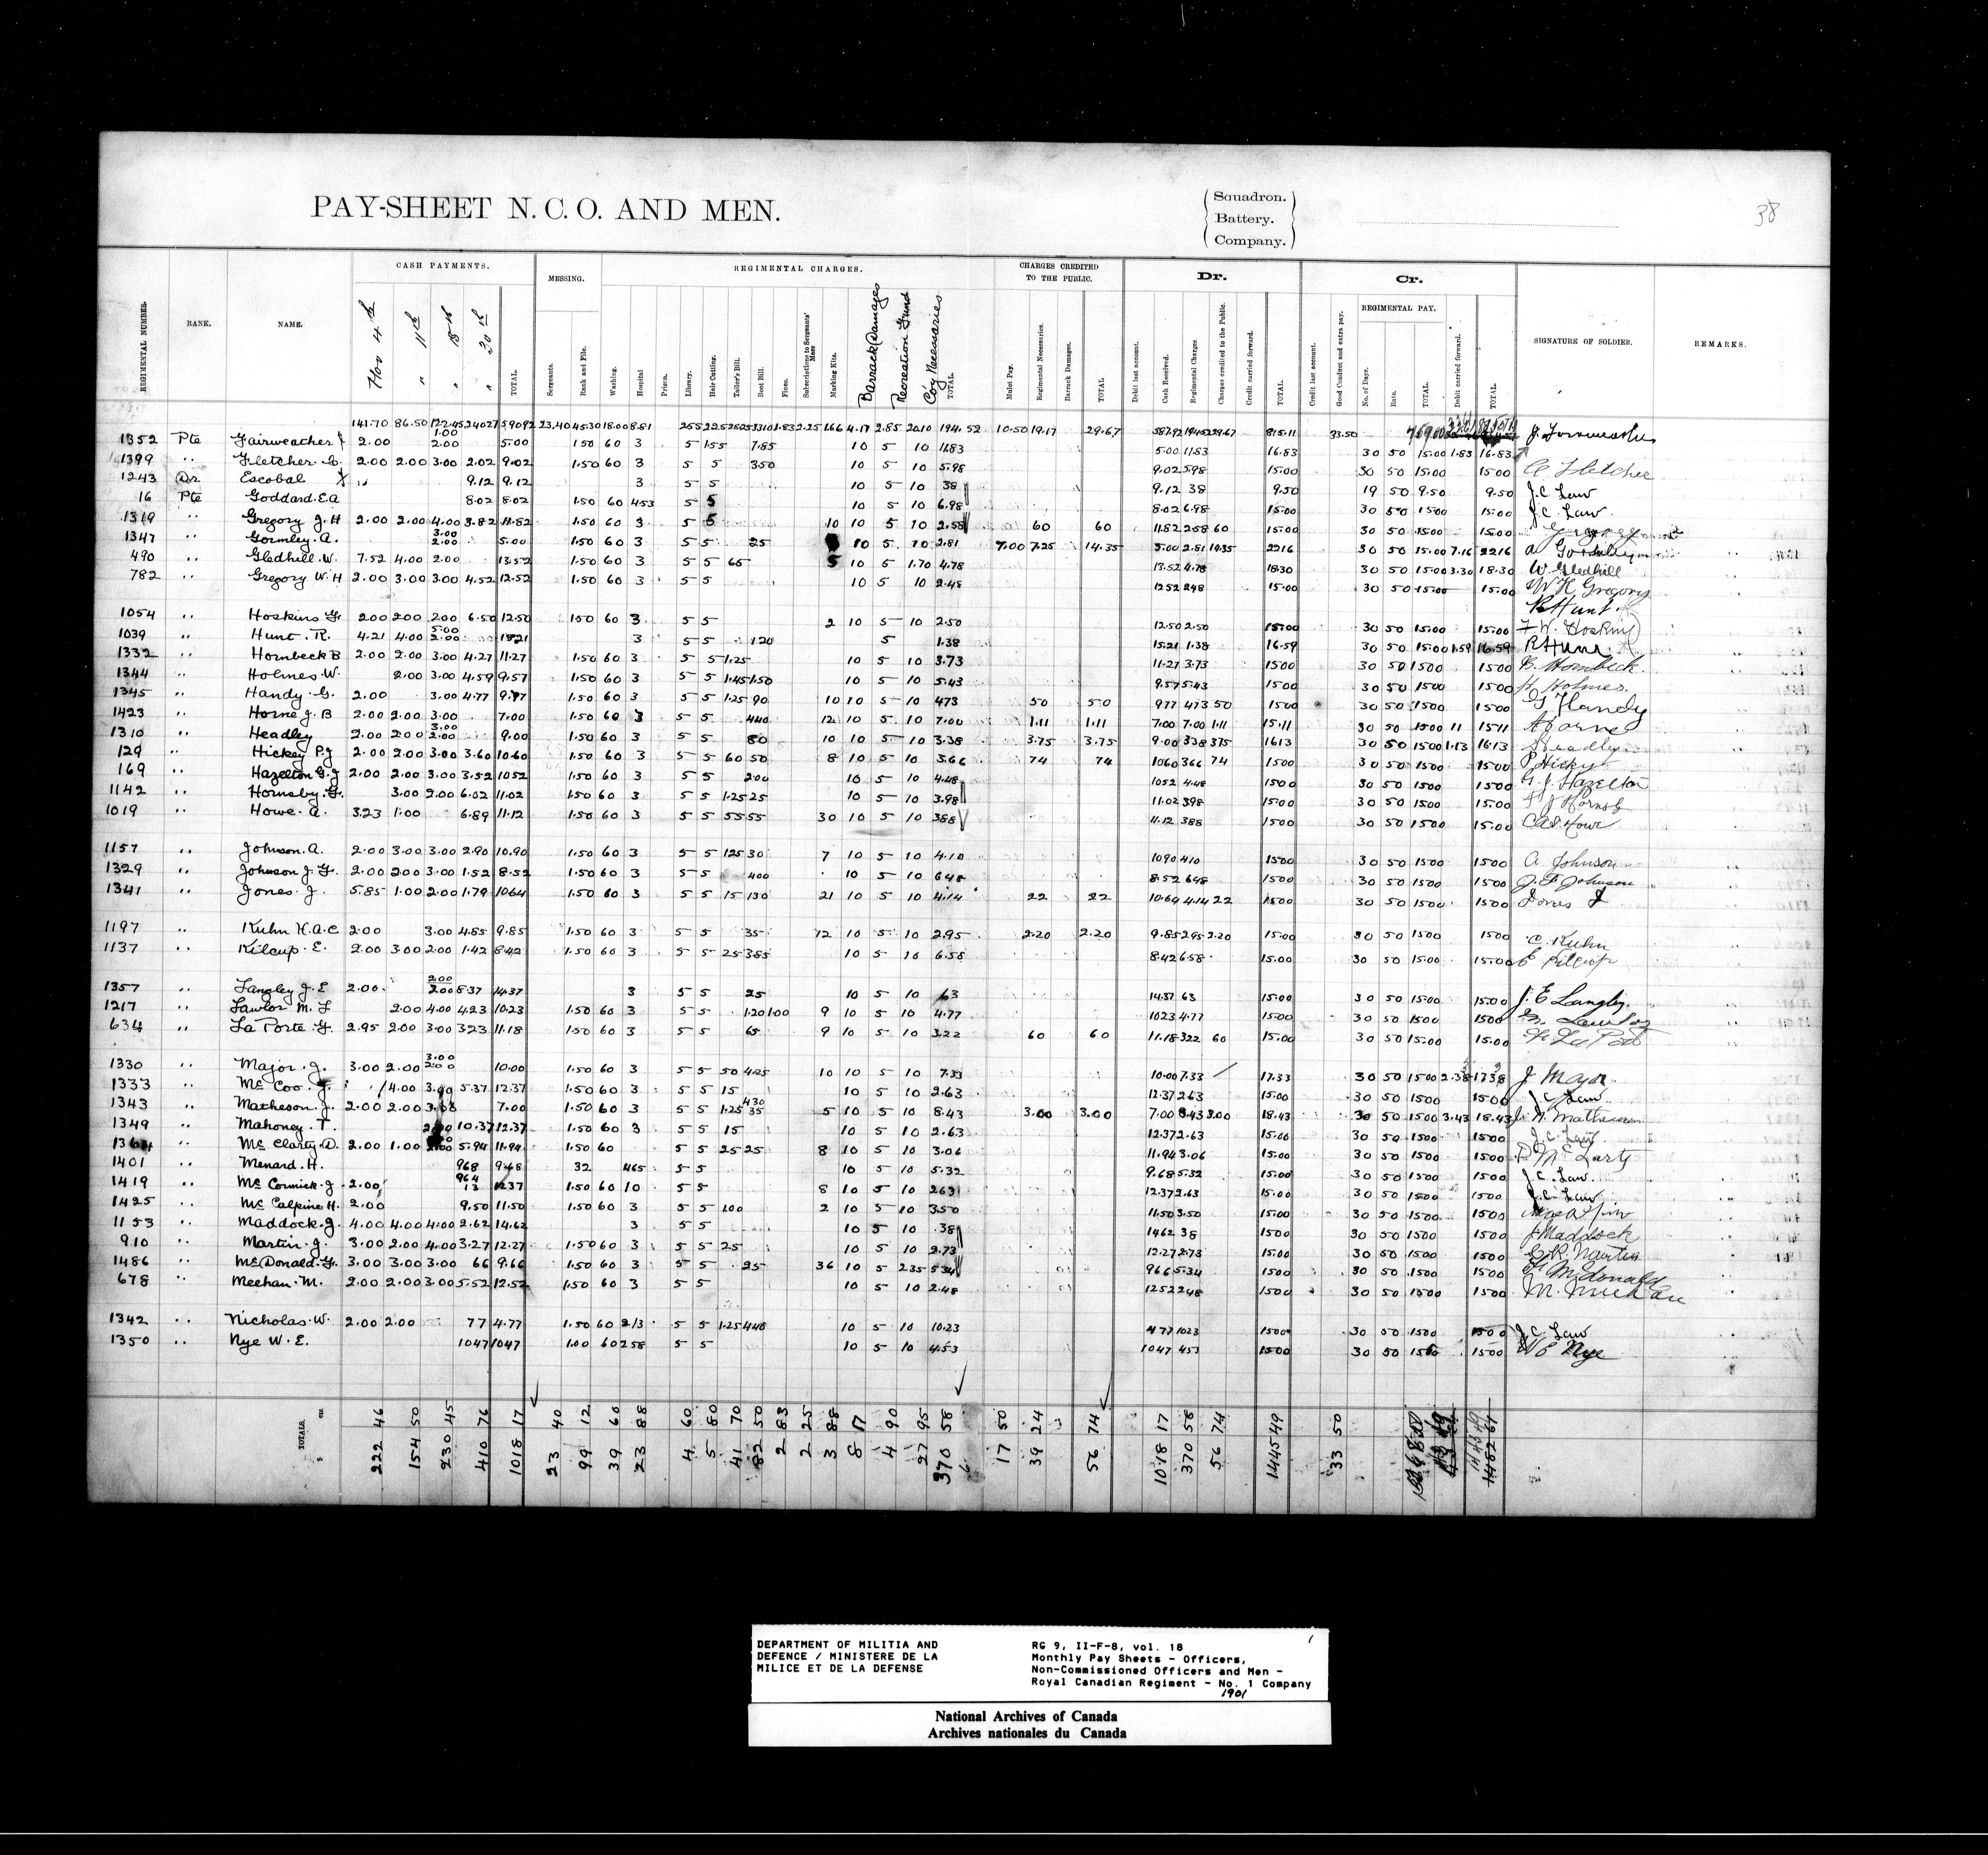 38
PAY-SHEET N. C. O. AND MEN.
Squadron.
Battery.
Company.
REGIMENTAL NUMBER.
RANK.
NAME.
CASH PAYMENTS.
Nov 4th
" 11th
" 18th
" 30th
TOTAL.
MESSING.
Sergeants.
Rank and File.
REGIMENTAL CHARGES.
Washing.
Hospital
Prison.
Library.
Hair Cutting.
Tailor's Bill.
Boot Bill.
Fines.
Subscriptions to Sergeants' Mess
Marking Kits.
Barrack Damages
Recreation Fund
Co'y Necessaries
TOTAL.
CHARGES CREDITED TO THE PUBLIC.
Mulct Pay.
Regimental Necessaries.
Barrack Damages.
TOTAL
Dr.
Debit last account.
Cash Received.
Regimental Charges
Charges credited to the Public.
Credit carried forward.
TOTAL
Cr.
Credit last account.
Good Conduct and extra pay.
REGIMENTAL PAY.
No. of Days.
Rate.
TOTAL.
Debit carried forward.
TOTAL.
SIGNATURE OF SOLDIER.
REMARKS.
141.70 86.50 122.45 240.27 590.92 23.40 45.30 18.00 8.81 194.52 10.50 19.17 29.67 587.92 194.52 29.67 815.11 33.50
1352 Pte Fairweather J 2.00 1.00 2.00 5.00 1 50 60 3 5 1 55 7.85 10 5 10 11.83 5.00 11.83 16.83 30 50 15.00 1.83 16.83
1399 " Fletcher. C. 2.00 2.00 3.00 2.02 9.02 1.50 60 3 5 5 3 50 10 5 10 5.98 9.02 5.98 15.00 30 50 15.00 15.00 C Fletcher
1243 Dr Escobal 9.12 9.12 3 5 5 10 5 10 38 9.12 38 9.50 19 50 9.50 9.50 J.C. Law
16 Pte Goddard. E.A 8.02 8.02 1.50 60 4.53 5 5 10 5 10 6.98 8.02 6.98 15.00 30 50 15.00 15.00 J.C. Law
1319 " Gregory J. H 2.00 2.00 4.00 3.82 11.82 1.50 60 3 5 5 10 10 5 10 2.58 60 60 11.82 2.58 60 15.00 30 50 15.00 15.00
1347 " Gormley. A. 3.00 2.00 5.00 1.50 60 3 5 5 25 10 5 10 2.81 7.00 7.25 14.35 5.00 2.81 14.35 22.16 30 50 15.00 7.16 22.16
490 " Gledhill. W. 7.52 4.00 2.00 13.52 1.50 60 3 5 5 65 5 10 5 1.70 4.78 13.52 4.78 18.30 30 50 15.00 3.30 18.30 W Gledhill
782 " Gregory W. H 2.00 3.00 3.00 4.52 12.52 1.50 60 3 5 5 10 5 10 2.48 12.52 2.48 15.00 30 50 15.00 15.00 W H Gregory
R Hunt.
1054 " Hoskins F. 2.00 2.00 2.00 6.50 12.50 1.50 60 3 5 5 2 10 5 10 2.50 12.50 2.50 15.00 30 50 15.00 15.00 F. W. Hoskins
1039 " Hunt. R. 4.21 4.00 5.00 2.00 15.21 3 5 5 1.20 5 1.38 15.21 1.38 16.59 30 50 15.00 1.59 16.59 R Hunt
1332 " Hornbeck B 2.00 2.00 3.00 4.27 11.27 1.50 60 3 5 5 1.25 10 5 10 3.73 11.27 3.73 15.00 30 50 15.00 15.00 B. Hornbeck.
1344 " Holmes. W. 2.00 3.00 4.59 9.57 1.50 60 3 5 5 1.45 1.50 10 5 10 5.43 9.57 5.43 15.00 30 50 15.00 15.00 H. Holmes.
1345 " Handy. G. 2.00 3.00 4.77 9.77 1.50 60 3 5 5 1.25 90 10 10 5 10 4.73 50 50 9.77 4.73 50 15.00 30 50 15.00 15.00 G Handy
1423 " Horne J. B 2.00 2.00 3.00 7.00 1.50 60 3 5 5 4.40 12 10 5 10 7.00 1.11 1.11 7.00 7.00 1.11 15.11 30 50 15.00 11 15.11
1310 " Headley 2.00 2.00 3.00 2.00 9.00 1.50 60 3 5 5 80 10 10 5 10 3.38 3.75 3.75 9.00 3.38 3.75 16.13 30 50 15.00 1.13 16.13 Headley
129 " Hickey P.J 2.00 2.00 3.00 3.60 10.60 1.50 60 3 5 5 60 50 8 10 5 10 3.66 74 74 10.60 3.66 74 15.00 30 50 15.00 15.00 P Hickey
169 " Hazelton G. J 2.00 2.00 3.00 3.52 10.52 1.50 60 3 5 5 2.00 10 5 10 4.48 10.52 4.48 15.00 30 50 15.00 15.00 G. J. Hazelton
1142 " Hornsby. F. 3.00 2.00 6.02 11.02 1.50 60 3 5 5 1.25 25 10 5 10 3.98 11.02 3.98 15.00 30 50 15.00 15.00
1019 " Howe. A. 3.23 1.00 6.89 11.12 1.50 60 3 5 5 55 55 30 10 5 10 3.88 11.12 3.88 15.00 30 50 15.00 15.00
1157 " Johnson. A. 2.00 3.00 3.00 2.90 10.90 1.50 60 3 5 5 1.25 30 7 10 5 10 4.10 10.90 4.10 15.00 30 50 15.00 15.00 A Johnson
1329 " Johnson J. F. 2.00 2.00 3.00 1.52 8.52 1.50 60 3 5 5 4.00 10 5 10 6.48 8.52 6.48 15.00 30 50 15.00 15.00 J. F. Johnson
1341 " Jones. J. 5.85 1.00 2.00 1.79 10.64 1.50 60 3 5 5 15 1.30 21 10 5 10 4.14 22 22 10.64 4.14 22 15.00 30 50 15.00 15.00 Jones J
1197 " Kuhn H.A.C 2.00 3.00 4.85 9.85 1.50 60 3 5 5 35 12 10 5 10 2.95 2.20 2.20 9.85 2.95 2.20 15.00 30 50 15.00 15.00 C. Kuhn
1137 " Kilcup. E. 2.00 3.00 2.00 1.42 8.42 1.50 60 3 5 5 25 3.85 10 5 10 6.58 8.42 6.58 15.00 30 50 15.00 15.00 E Kilcup
1357 " Langley J. E 2.00 2.00 2.00 8.37 14.37 3 5 5 25 10 5 10 63 14.37 63 15.00 30 50 15.00 15.00 J. E Langley.
1217 " Lawlor M. F 2.00 4.00 4.23 10.23 1.50 60 3 5 5 1.20 1.00 9 10 5 10 4.77 10.23 4.77 15.00 30 50 15.00 15.00
634 " La Porte. G. 2.95 2.00 3.00 3.23 11.18 1.50 60 3 5 5 65 9 10 5 10 3.22 60 60 11.18 3.22 60 15.00 30 50 15.00 15.00
1330 " Major. J. 3.00 2.00 3.00 2.00 10.00 1.50 60 3 5 5 50 4.25 10 10 5 10 7.33 10.00 7.33 17.33 30 50 15.00 J Major
1333 " Mc Coo. F. 4.00 3.00 5.37 12.37 1.50 60 3 5 5 15 10 5 10 2.63 12.37 2.63 15.00 30 50 15.00 15.00 J.C. Law.
1343 " Matheson. J. 2.00 2.00 7.00 1.50 60 3 5 5 1.25 4.30 35 5 10 5 10 8.43 3.00 3.00 7.00 8.43 3.00 18.43 30 50 15.00 3.43 18.43 J. N. Matheson
1349 " Mahoney. T. 10.37 12.37 1.50 60 3 5 5 15 10 5 10 2.63 12.37 2.63 15.00 30 50 15.00 15.00 J.C. Law.
" Mc Clarty. D. 2.00 1.00 5.94 11.94 1.50 60 5 5 25 25 8 10 5 10 3.06 11.94 3.06 15.00 30 50 15.00 15.00 D McClarty
1401 " Menard. H. 9.68 9.68 32 4.65 5 5 10 5 10 5.32 9.68 5.32 15.00 30 50 15.00 15.00 J.C. Law.
1419 " Mc Cormick. J 2.00 9.64 13 12.37 1.50 60 10 5 5 8 10 5 10 2.63 12.37 2.63 15.00 30 50 15.00 15.00 J.C. Law
1425 " Mc Calpine H. 2.00 9.50 11.50 1.50 60 3 5 5 1.00 2 10 5 10 3.50 11.50 3.50 15.00 30 50 15.00 15.00
1153 " Maddock. J. 4.00 4.00 4.00 2.62 14.62 3 5 5 10 5 10 .38 14.62 38 15.00 30 50 15.00 15.00 J Maddock
910 " Martin. J. 3.00 2.00 4.00 3.27 12.27 1.50 60 3 5 5 25 10 5 10 2.73 12.27 2.73 15.00 30 50 15.00 15.00
1486 " Mc Donald. F. 3.00 3.00 3.00 66 9.66 1.50 60 3 5 5 25 36 10 5 2.35 5.34 9.66 5.34 15.00 30 50 15.00 15.00 F. McDonald
678 " Meehan. M. 2.00 2.00 3.00 5.52 12.52 1.50 60 3 5 5 10 5 10 2.48 12.52 2.48 15.00 30 50 15.00 15.00 M. Meehan
1342 " Nicholas. W. 2.00 2.00 77 4.77 1.50 60 2/3 5 5 1.25 4.40 10 5 10 10.23 4.77 10.23 15.00 30 50 15.00 15.00 J.C. Law
1350 " Nye W. E. 10.47 10.47 1.00 60 2.58 5 5 10 5 10 4.53 10.47 4.53 15.00 30 50 15.00 15.00 W E Nye
TOTALS. $ cts 222 46 154 50 230 45 410 76 1018 17 23 40 99 12 39 60 23 88 4 60 5 80 41 70 82 50 2 83 2 25 3 88 8 17 4 90 27 95 370 58 17 50 39 24 56 74 1018 17 370 58 56 74 1445 49 33 50 1482 61
DEPARTMENT OF MILITIA AND
DEFENCE / MINISTERE DE LA
MILICE ET DE LA DEFENSE
RG 9, II-F-8, vol. 18
Monthly Pay Sheets - Officers,
Non-Commissioned Officers and Men -
Royal Canadian Regiment - No. 1 Company
1901
National Archives of Canada
Archives nationales du Canada